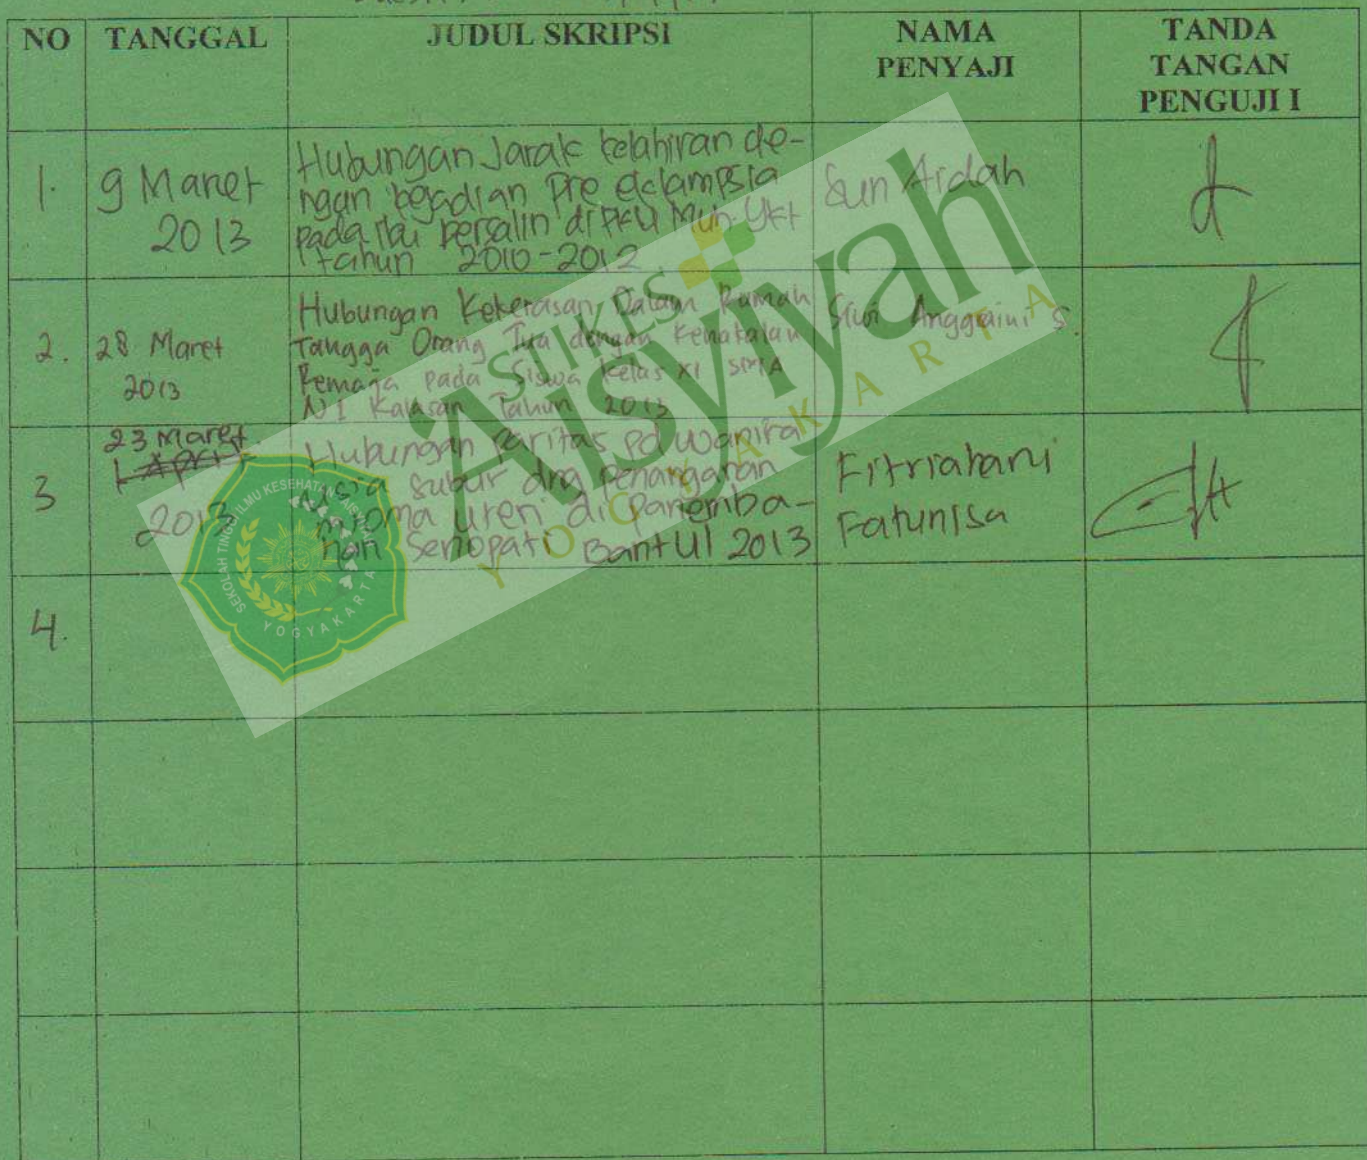 NO TANGGAL JUDUL SKRIPSI NAMA PENYAJI TANDA TANGAN PENGUJI I
1. 9 Maret 2013
Hubungan Jarak kelahiran de-
ngan kejadian Pre eclampsia
pada ibu bersalin di PKU Muh. Ykt
tahun 2010-2012
Ardah
2. 28 Maret 2013
Hubungan Kekerasan Dalam Rumah
Tangga Orang Tua dengan Kenakalan
Remaja pada Siswa Kelas XI SMA
N I Kalasan Tahun 2013
Anggraini S.
3 23 Maret 2013
Hubungan paritas pd wanita
usia subur dng penanganan
mioma uteri di Panemba-
han Senopati Bantul 2013
Fitriahani
Fatunisa
4.
STIKES
'Aisyiyah
YOGYAKARTA
SEKOLAH TINGGI ILMU KESEHATAN 'AISYIYAH
YOGYAKARTA